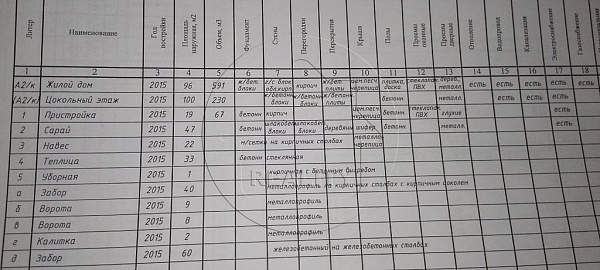 Литер Наименование Год постройки Площадь наружная, м2 Объем, м3 Фундамент Стены Перегородки Перекрытия Крыша Полы Проемы оконные Проемы дверные Отопление Водопровод Канализация Электроснабжение Газоснабжение
1 2 3 4 5 6 7 8 9 10 11 12 13 14 15 16 17 18
А2/к Жилой дом 2015 96 591 ж/бет. блоки г/с блок обл.кирп. кирпич ж/бет. плиты цем.песч. черепица плитка, доска стеклопак. ПВХ дерев., метал. есть есть есть есть есть
(А2/к) Цокольный этаж 2015 100 230 ж/бетонн блоки ж/бетонн блоки ж/бетонн плиты бетонн металл. есть есть есть есть
1 Пристройка 2015 19 67 бетонн кирпич цем.песч. черепица бетонн стеклопак. ПВХ глухие есть
2 Сарай 2015 47 бетонн шлакобетон. блоки шлакобетон. блоки деревянн шифер бетонн металл. есть
3 Навес 2015 22 м/сетка на кирпичных столбах металло-черепица
4 Теплица 2015 33 бетонн стеклянная
5 Уборная 2015 1 кирпичная с бетонным выгребом
а Забор 2015 40 металлопрофиль на кирпичных столбах с кирпичным цоколем
б Ворота 2015 9 металлопрофиль
в Ворота 2015 8 металлопрофиль
г Калитка 2015 2 металлопрофиль
д Забор 2015 60 железобетонный на железобетонных столбах